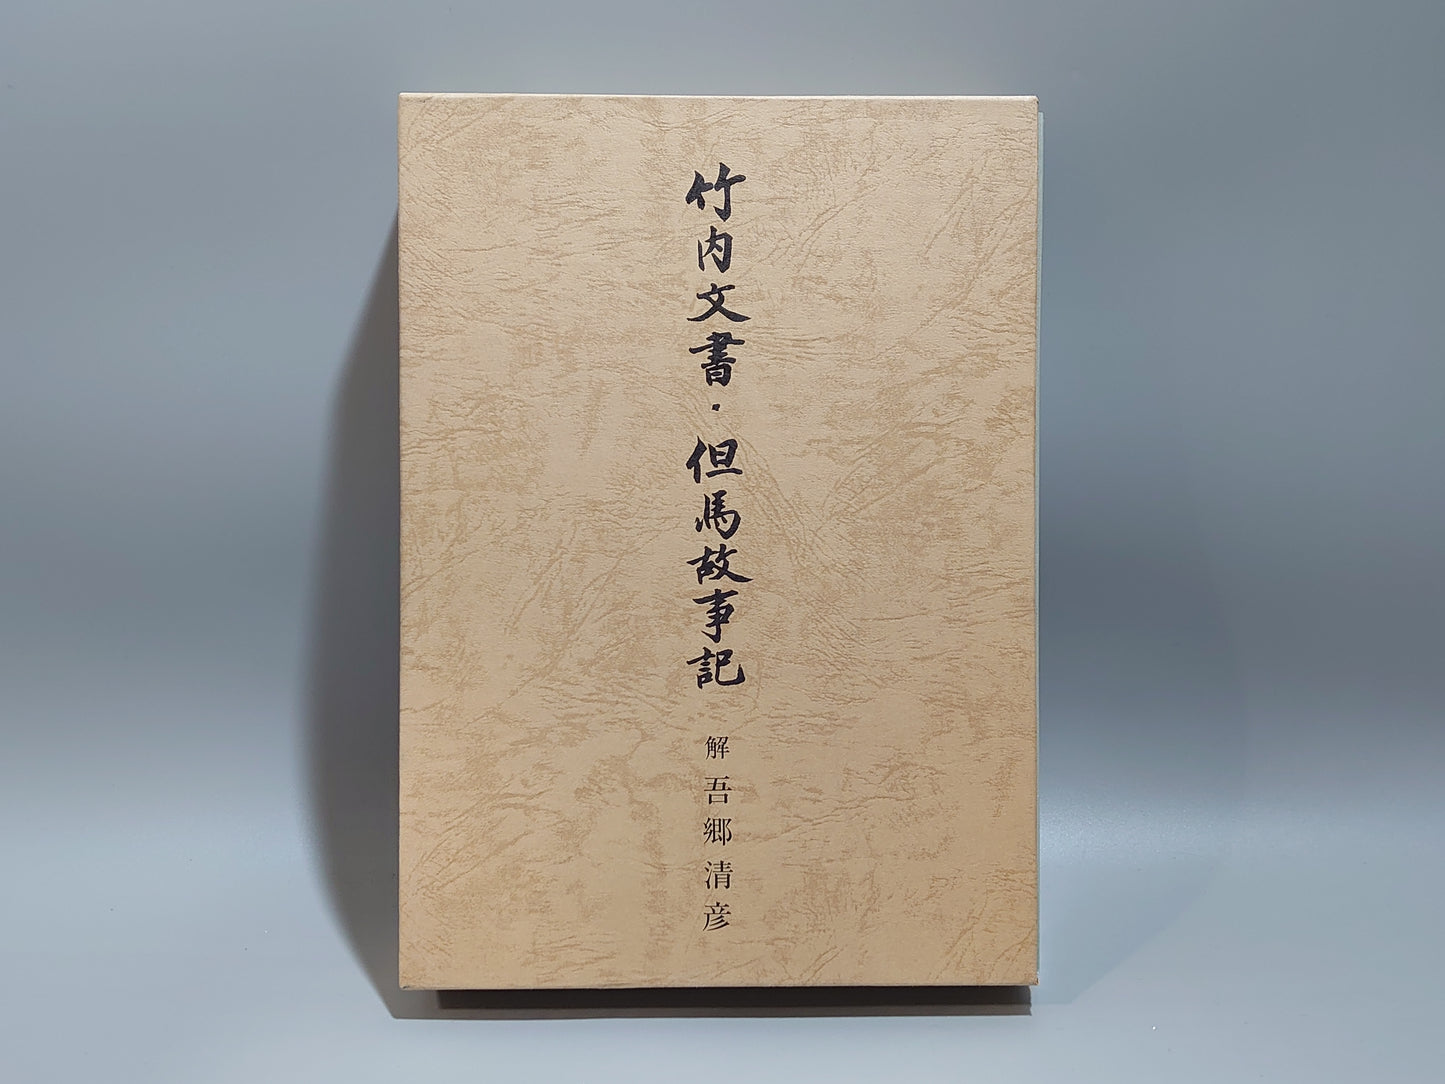 竹内文書・但馬故事記
解 吾郷清彦